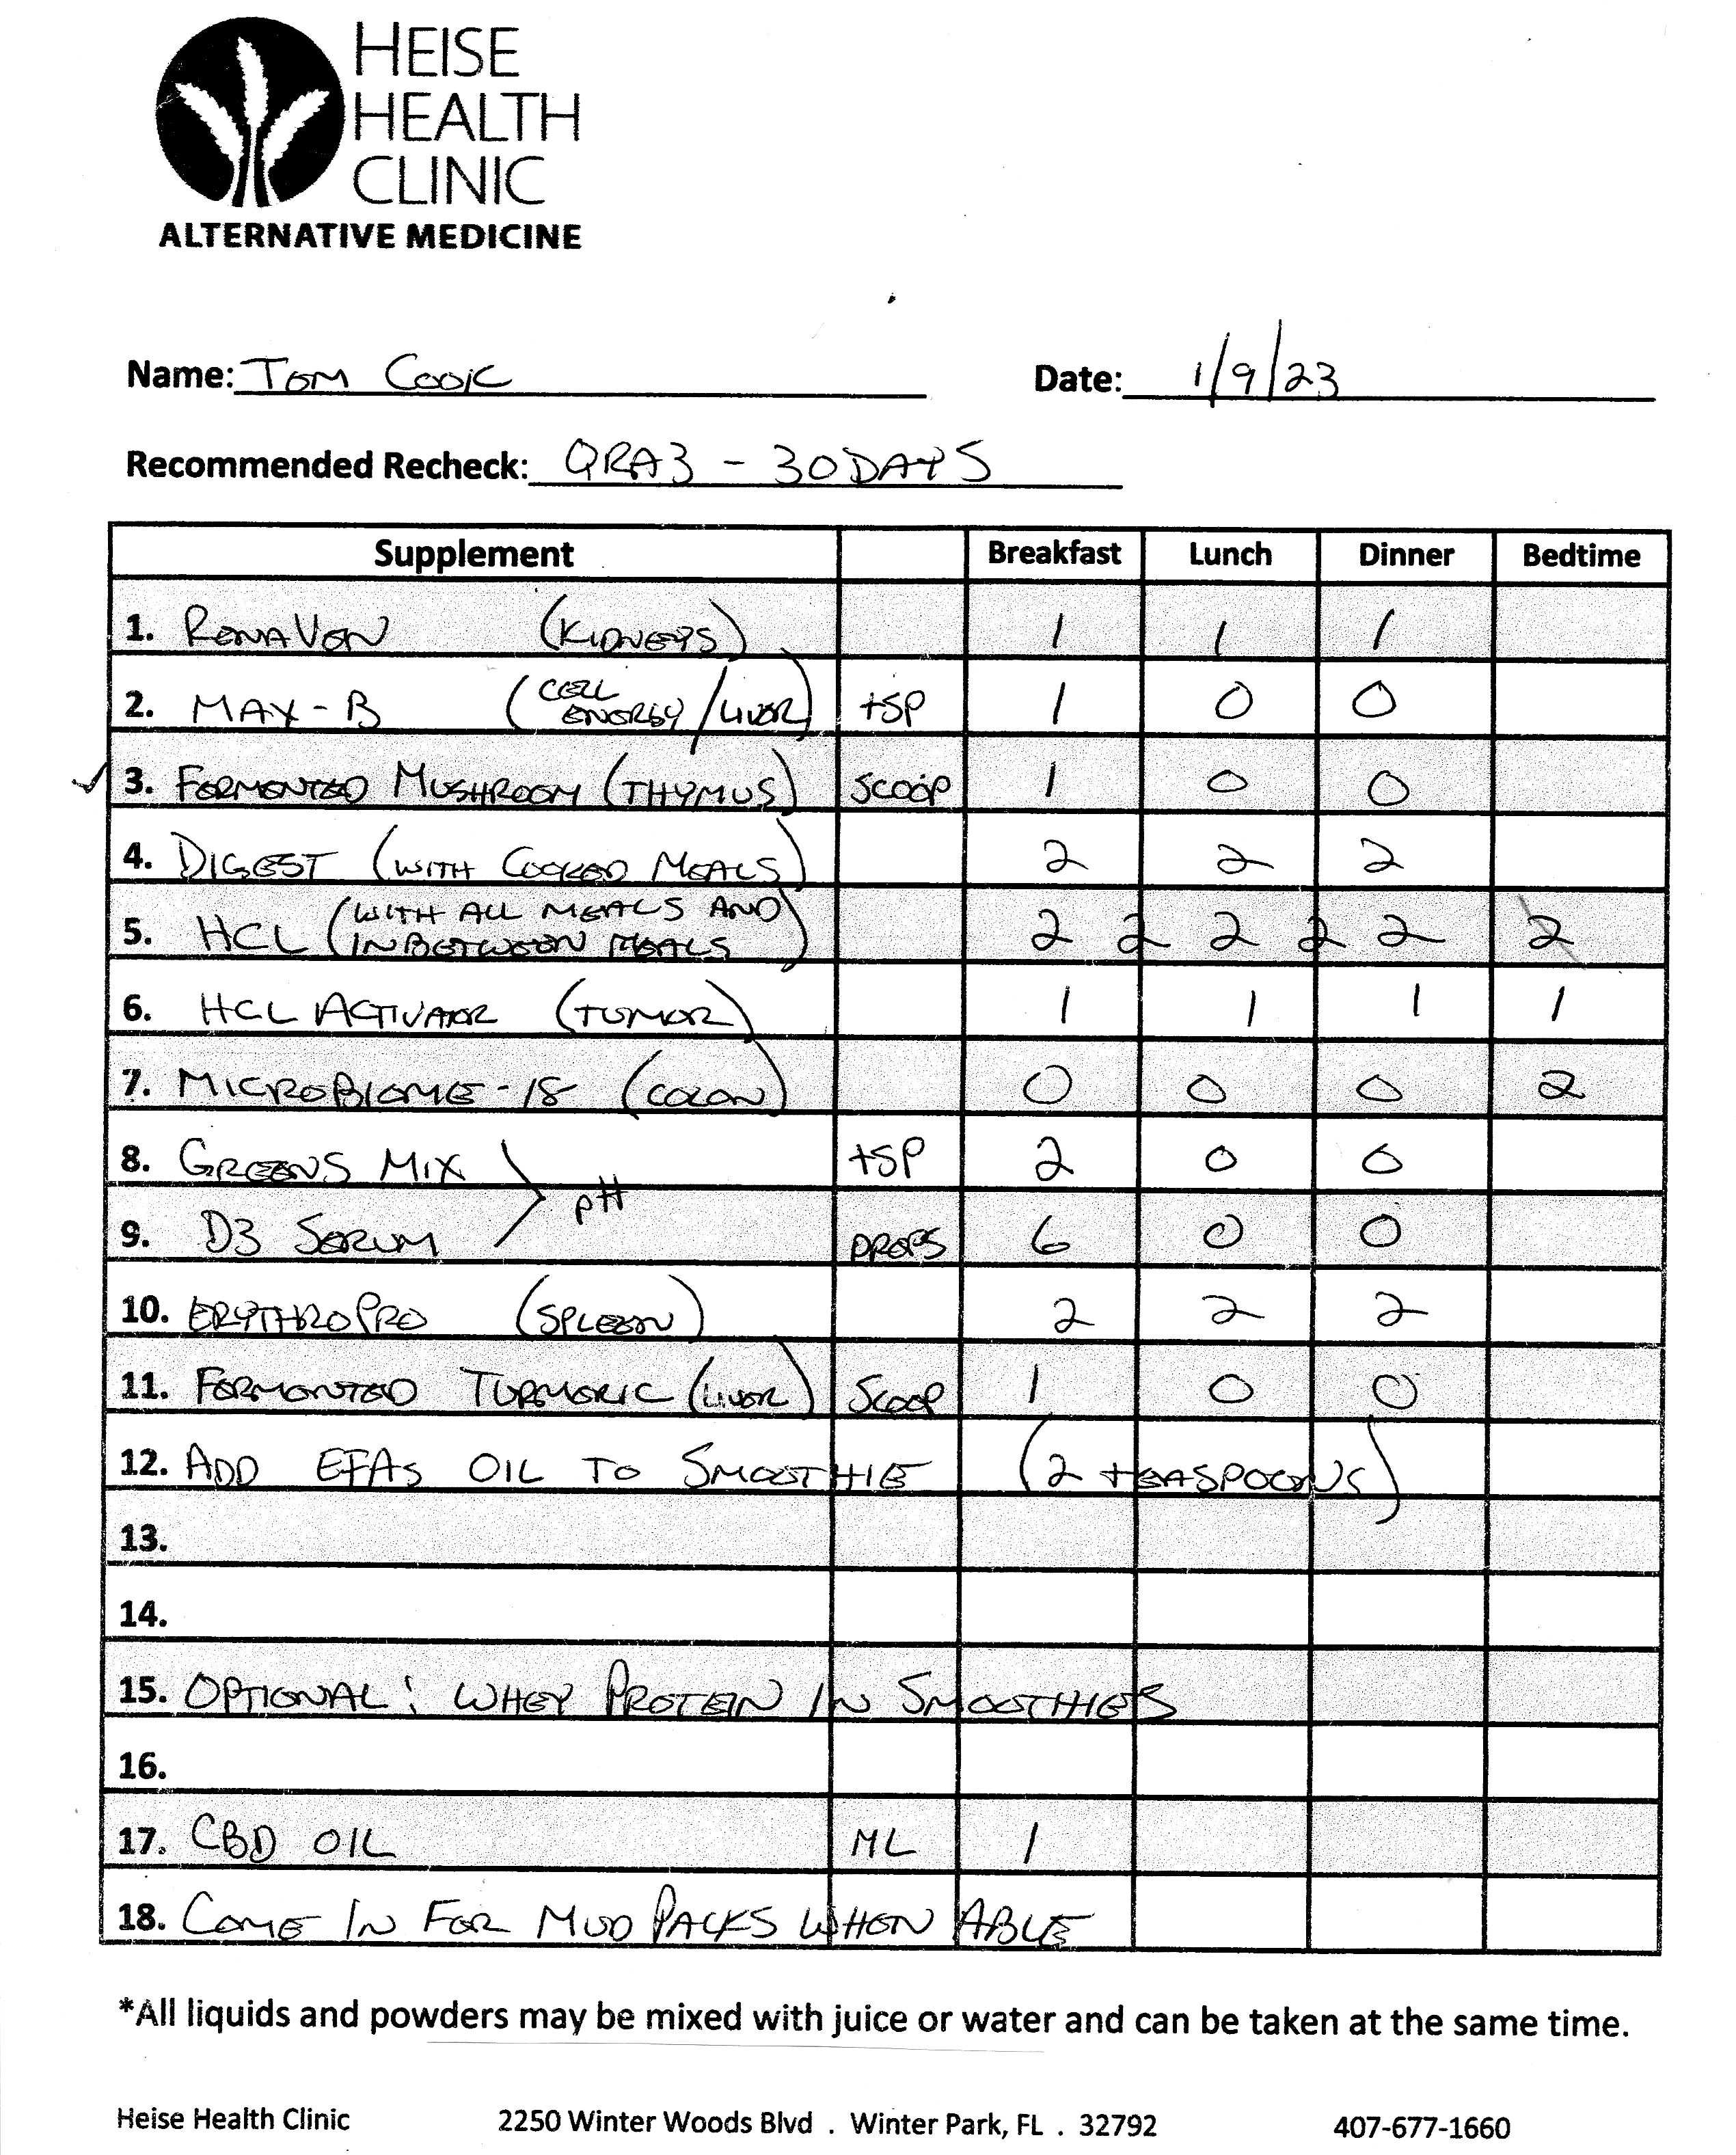 HEISE
HEALTH
CLINIC
ALTERNATIVE MEDICINE
Name: TOM COOK Date: 1/9/23
Recommended Recheck: QRA3 - 30 DAYS
Supplement Breakfast Lunch Dinner Bedtime
1. RENAVEN (KIDNEYS) 1 1 1
2. MAX-B (CELL ENERGY/LIVER) tSP 1 0 0
3. FERMENTED MUSHROOM (THYMUS) SCOOP 1 0 0
4. DIGEST (WITH COOKED MEALS) 2 2 2
5. HCL (WITH ALL MEALS AND IN BETWEEN MEALS) 2 2 2 2 2 2
6. HCL ACTIVATOR (TUMOR) 1 1 1 1
7. MICROBIOME-18 (COLON) 0 0 0 2
8. GREENS MIX tSP 2 0 0
pH
9. D3 SERUM DROPS 6 0 0
10. ERYTHROPRO (SPLEEN) 2 2 2
11. FERMENTED TURMERIC (LIVER) SCOOP 1 0 0
12. ADD EFAs OIL TO SMOOTHIE (2 tEASPOONS)
13.
14.
15. OPTIONAL: WHEY PROTEIN IN SMOOTHIES
16.
17. CBD OIL ML 1
18. COME IN FOR MUD PACKS WHEN ABLE
*All liquids and powders may be mixed with juice or water and can be taken at the same time.
Heise Health Clinic 2250 Winter Woods Blvd . Winter Park, FL . 32792 407-677-1660